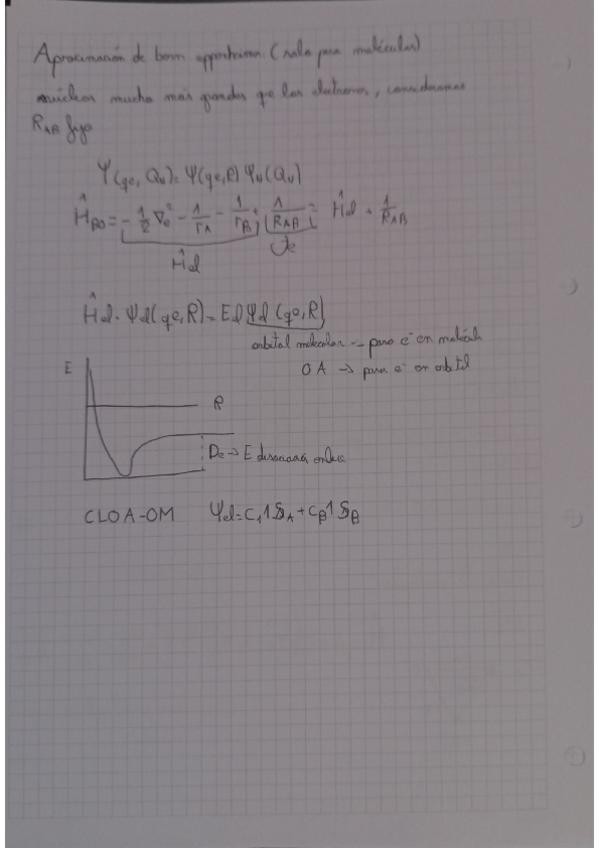 Aproximación de born oppenheimer (solo para moléculas)
núcleos mucho más grandes que los electrones, consideramos
R_AB fijo
Ψ(qe, Qν) = Ψ(qe,R) Ψν(Qν)
Ĥ_BO = -1/2 ∇e² - 1/rA - 1/rB + 1/R_AB = Ĥel + 1/R_AB
Ĥel
Ĥel · Ψel(qe,R) = Eel Ψel(qe,R)
orbital molecular → para e⁻ en molécula
OA → para e⁻ en orbital
E
R
De → E disociación enlace
CLOA-OM Ψel = C₁1S_A + C_B1S_B